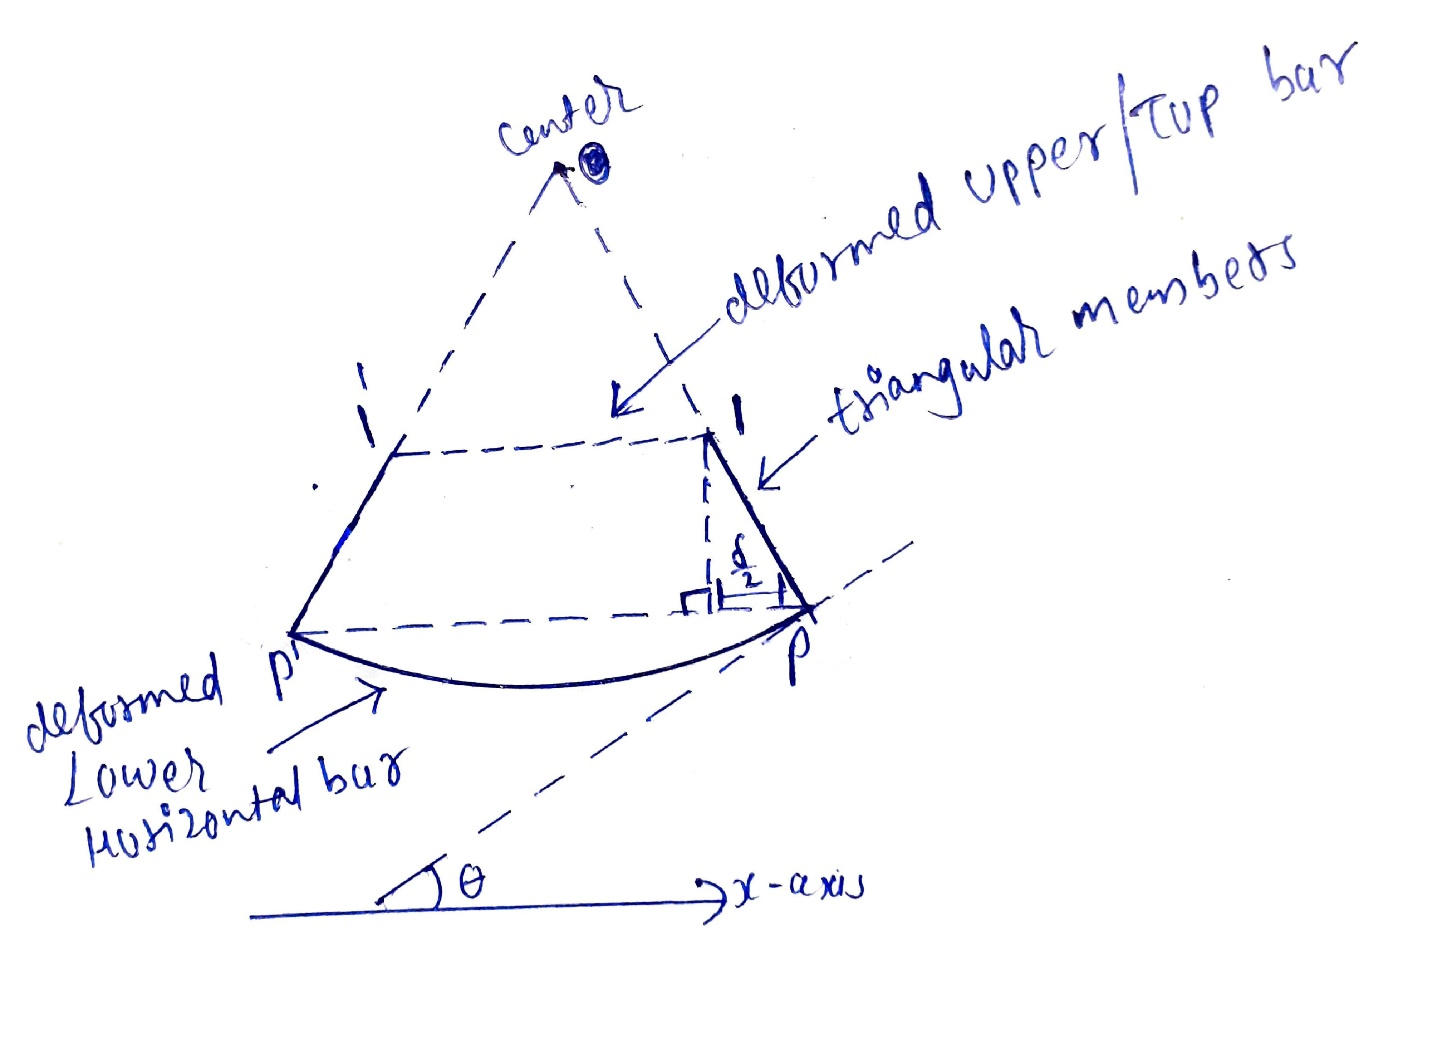 center
deformed upper/Top bar
triangular members
1
1
δ/2
P'
P
deformed
Lower
Horizontal bar
θ
x-axis